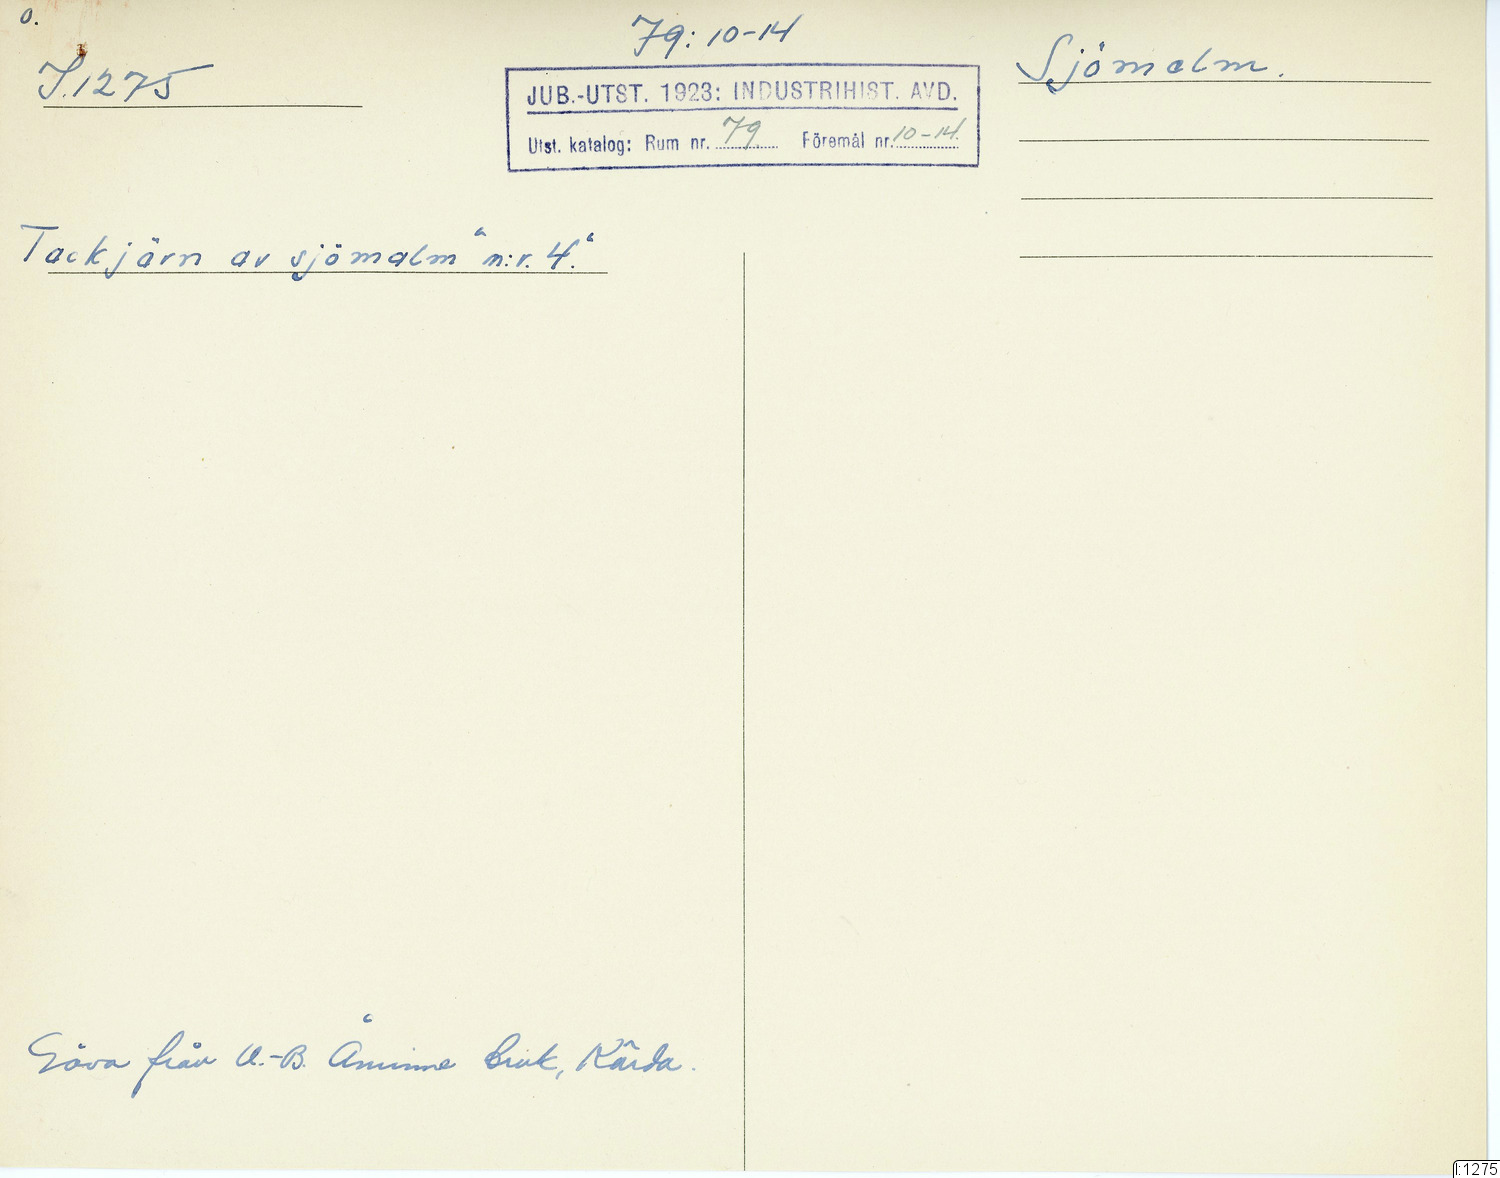 O.
79: 10-14
I.1275
Sjömalm.
JUB.-UTST. 1923: INDUSTRIHIST. AVD.
Utst. katalog: Rum nr. 79 Föremål nr. 10-14.
Tackjärn av sjömalm "n:r. 4."
Gåva från A.-B. Åminne bruk, Kärda.
I:1275